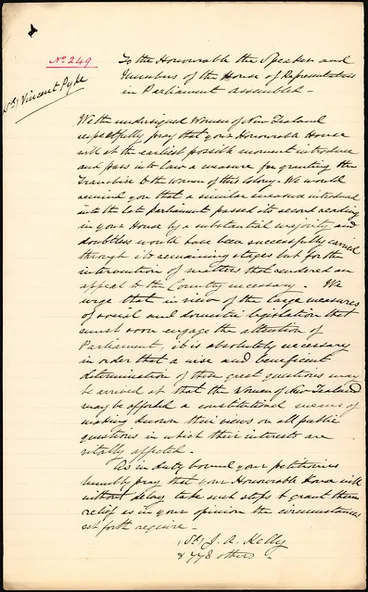 No 249
To the Honourable the Speaker and
Members of the House of Representatives
in Parliament assembled -
(Sd) Vincent Pyke
We the undersigned Women of New Zealand
respectfully pray that your Honorable House
will at the earliest possible moment introduce
and pass into law a measure for granting the
Franchise to the women of this Colony. We would
remind you that a similar measure introduced
into the late Parliament passed its second reading
in your House by a substantial majority and
doubtless would have been successfully carried
through its remaining stages but for the
intervention of matters that rendered an
appeal to the Country necessary. We
urge that in view of the large measures
of social and domestic legislation that
must soon engage the attention of
Parliament, it is absolutely necessary
in order that a wise and beneficent
determination of these great questions may
be arrived at that the Women of New Zealand
may be afforded a constitutional means of
making known their views on all public
questions in which their interests are
vitally affected.
As in duty bound your petitioners
humbly pray that your Honourable House will
without delay take such steps to grant them
relief as in your opinion the circumstances
set forth require -
(Sd) J. A. Kelly
& 778 others -